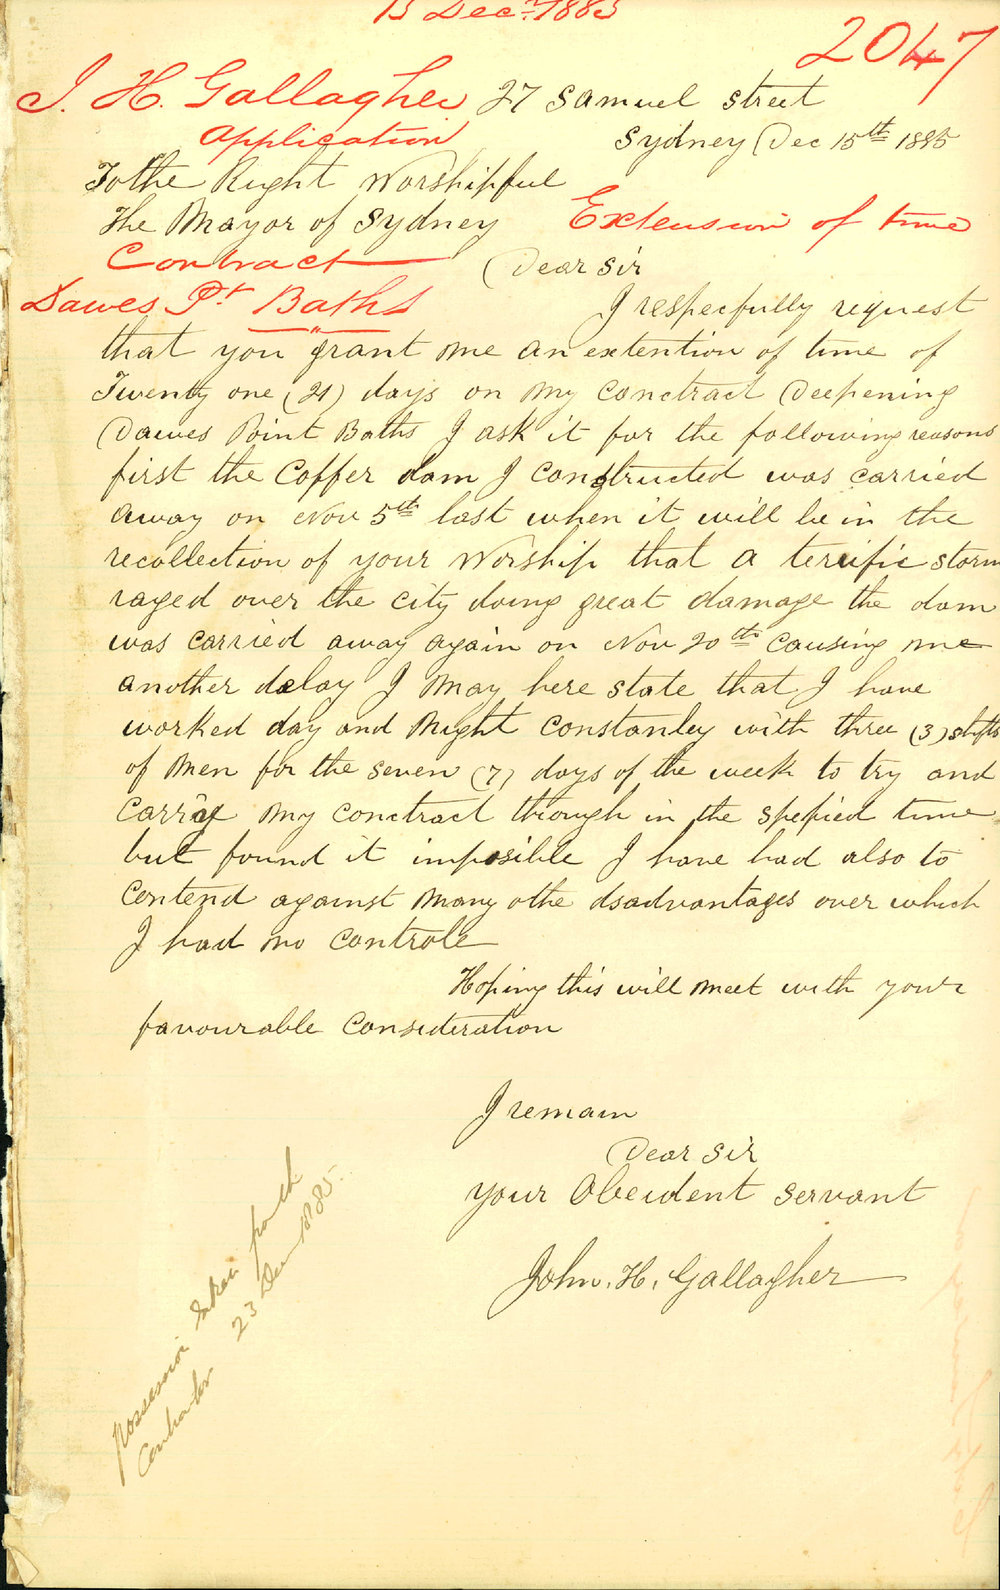 15 Decr. 1885
2047
J. H. Gallagher
27 Samuel street
Application
Sydney Dec 15th 1885
To the Right Worshipful
The Mayor of Sydney
Extension of time
Contract
Dear Sir
Dawes Pt. Baths
I respecfully request
that you grant me an extention of time of
Twenty one (21) days on my conctract Deepening
Dawes Point Baths I ask it for the following reasons
first the Coffer dam I constructed was carried
away on Nov 5th last when it will be in the
recollection of your Worship that a terrific storm
raged over the city doing great damage the dam
was carried away again on Nov 20th causing me
another delay I may here state that I have
worked day and Night constanley with three (3) shifts
of men for the seven (7) days of the week to try and
carry my conctract through in the spefied time
but found it imposible I have had also to
contend against many othe dsadvantages over which
I had no controle
Hoping this will meet with your
favourable consideration
I remain
Dear Sir
your Obeident servant
John. H. Gallagher
Possession taken from
Contractor 23 Decr 1885.